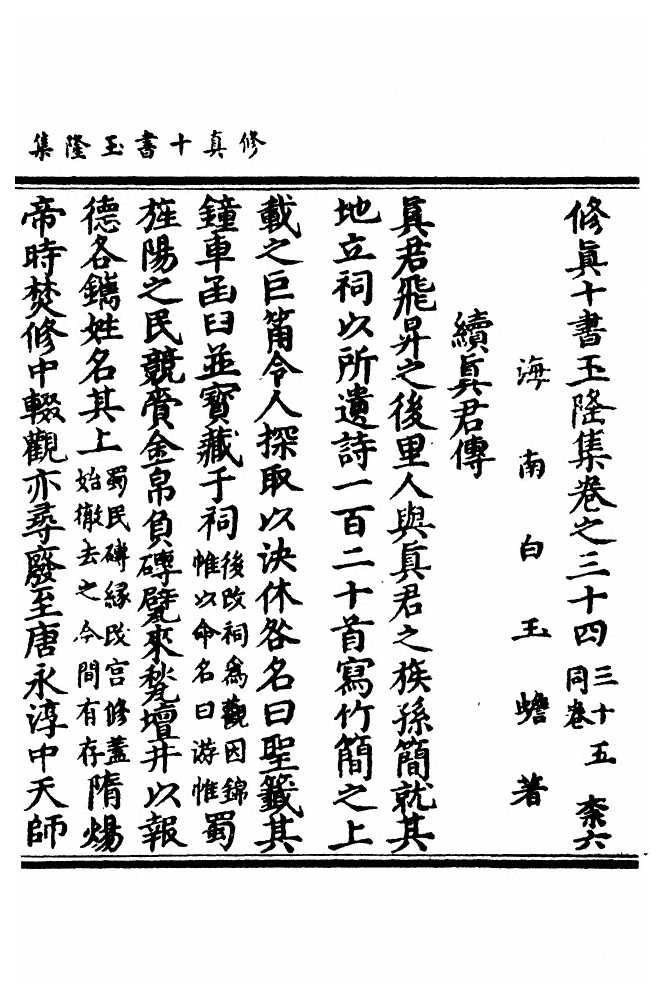 修真十書玉隆集
修眞十書玉隆集卷之三十四 三十五同卷 柰六
海南白玉蟾著
續眞君傳
眞君飛昇之後里人與眞君之族孫簡就其
地立祠以所遺詩一百二十首寫竹簡之上
載之巨筩令人探取以決休咎名曰聖籤其
鐘車函臼並寳藏于祠 後改祠爲觀因錦帷以命名曰游帷 蜀
旌陽之民競賫金帛負磚甓來甃壇井以報
德各鐫姓名其上 蜀民磚緣改宮修蓋始徹去之今間有存 隋煬
帝時焚修中輟觀亦尋廢至唐永淳中天師